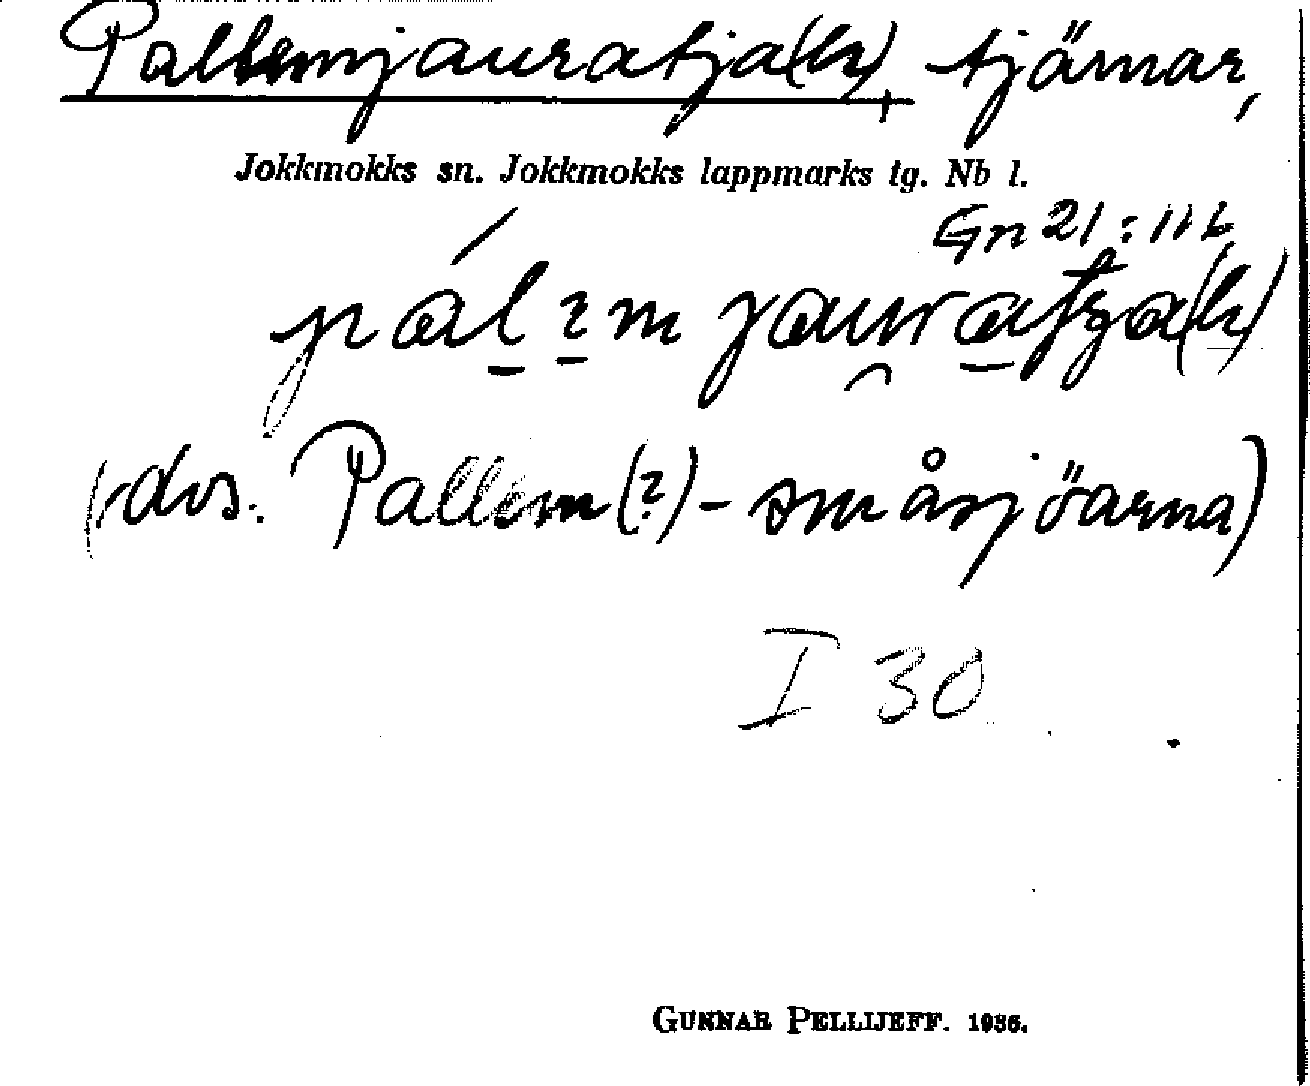 Pallemjauratja(h), tjärnar,
Jokkmokks sn. Jokkmokks lappmarks tg. Nb l.
Gn 21:11b
(-dvs. Pallem(?)-småsjöarna)
I 30
GUNNAR PELLIJEFF. 1936.